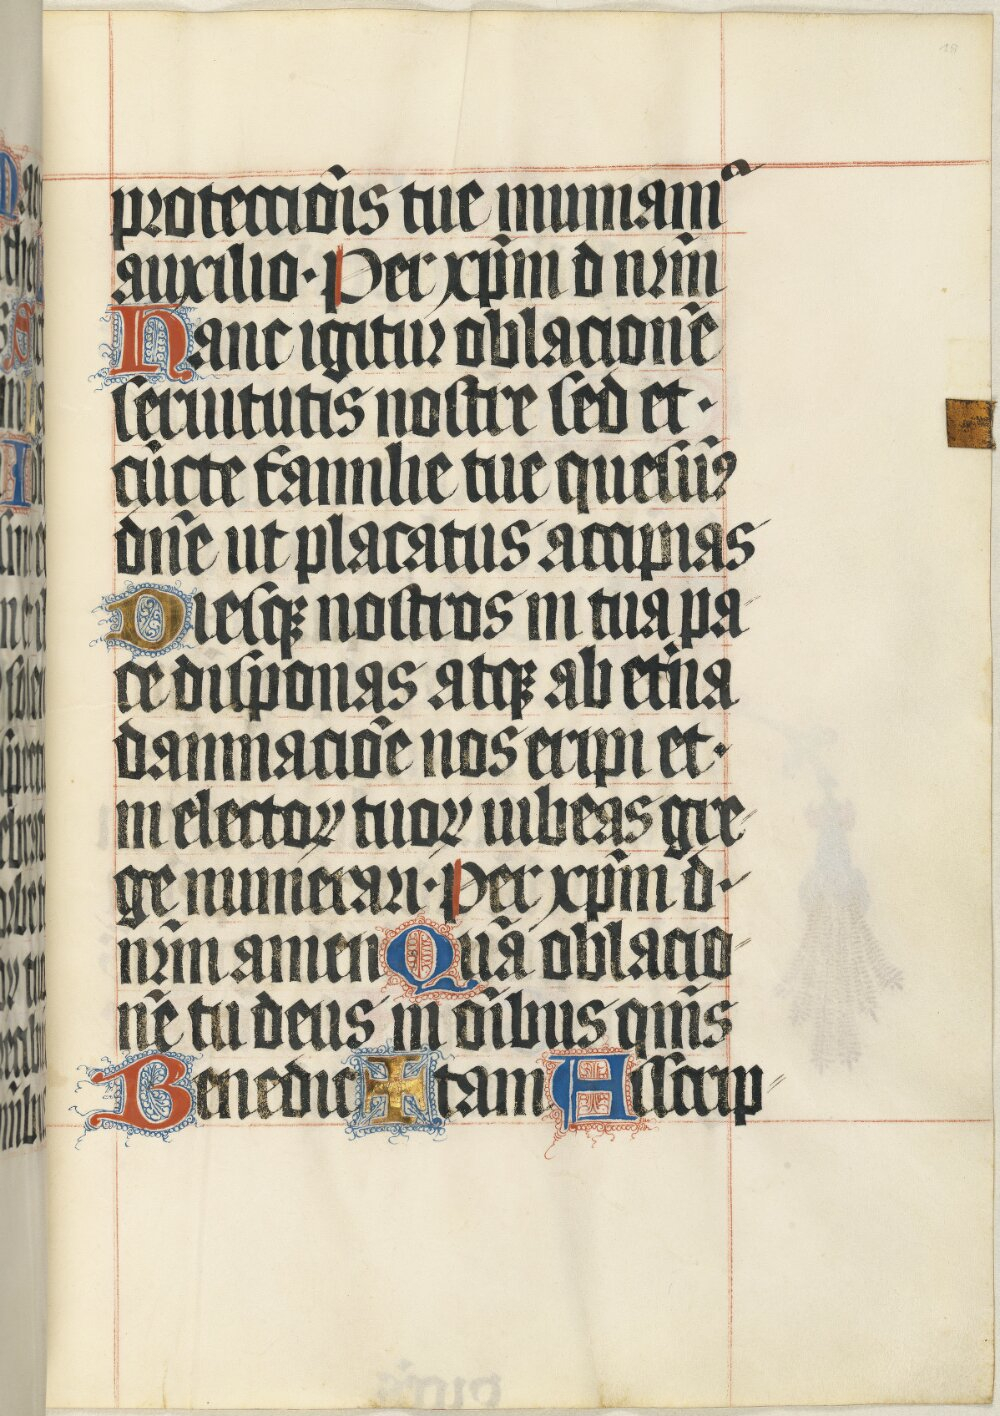 protecciõis tue muniamᷣ
auxilio· Per xp̄m d nr̄m
Hanc igitur oblacionē
seruitutis nostre sed et·
cūcte familie tue quesūꝯ
dn̄e ut placatus accipias
Diesqꝫ nostros in tua pa
ce disponas atqꝫ ab et̄na
damnaciōe nos eripi et·
in electoꝝ tuoꝝ iubeas gre
ge numerari· Per xp̄m d·
nr̄m amen Quā oblacio
nē tu deus in oībus qm̄s
Benedic ✠ tam Asscrip